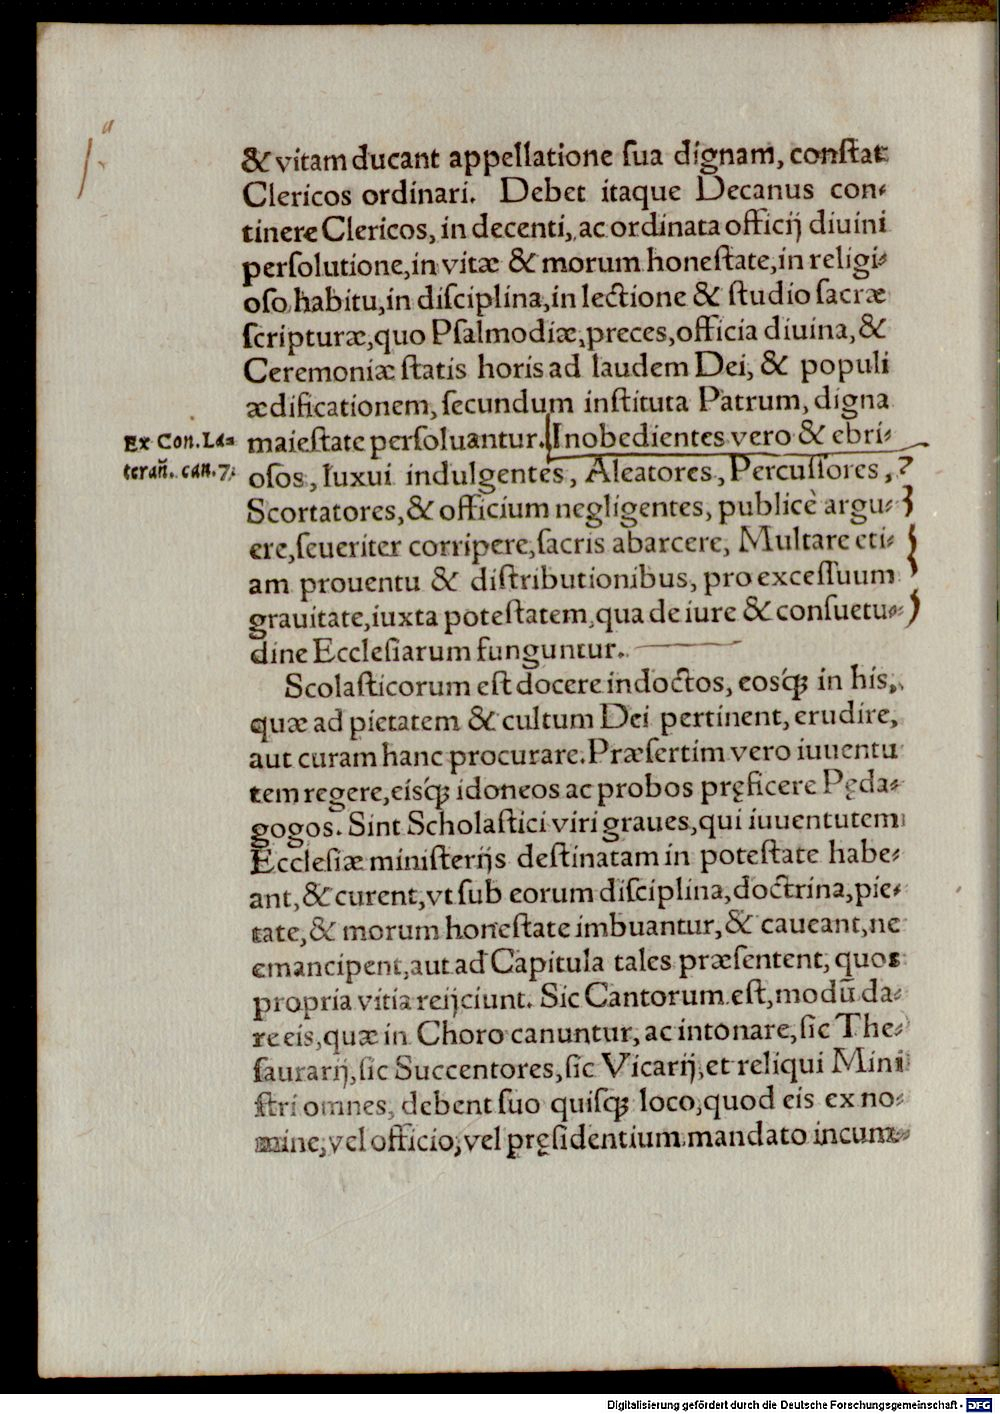 & vitam ducant appellatione sua dignam, constat
Clericos ordinari. Debet itaque Decanus con-
tinere Clericos, in decenti, ac ordinata officij diuini
persolutione, in vitæ & morum honestate, in religi-
oso habitu, in disciplina, in lectione & studio sacræ
scripturæ, quo Psalmodiæ, preces, officia diuina, &
Ceremoniæ statis horis ad laudem Dei, & populi
ædificationem, secundum instituta Patrum, digna
Ex Con. La-
teran̄. can. 7.
maiestate persoluantur. Inobedientes vero & ebri-
osos, luxui indulgentes, Aleatores, Percussores,
Scortatores, & officium negligentes, publicè argu-
ere, seueriter corripere, sacris abarcere, Multare eti-
am prouentu & distributionibus, pro excessuum
grauitate, iuxta potestatem, qua de iure & consuetu-
dine Ecclesiarum funguntur.
Scolasticorum est docere indoctos, eosq́ꝫ in his,
quæ ad pietatem & cultum Dei pertinent, erudire,
aut curam hanc procurare. Præsertim vero iuuentu
tem regere, eisq́ꝫ idoneos ac probos pręficere Pęda-
gogos. Sint Scholastici viri graues, qui iuuentutem
Ecclesiæ ministerijs destinatam in potestate habe-
ant, & curent, vt sub eorum disciplina, doctrina, pie-
tate, & morum honestate imbuantur, & caueant, ne
emancipent, aut ad Capitula tales præsentent, quos
propria vitia reijciunt. Sic Cantorum est, modū da-
re eis, quæ in Choro canuntur, ac intonare, sic The-
saurarij, sic Succentores, sic Vicarij, et reliqui Mini
stri omnes, debent suo quisqꝫ loco, quod eis ex no-
mine, vel officio, vel pręsidentium mandato incum-
Digitalisierung gefördert durch die Deutsche Forschungsgemeinschaft - DFG